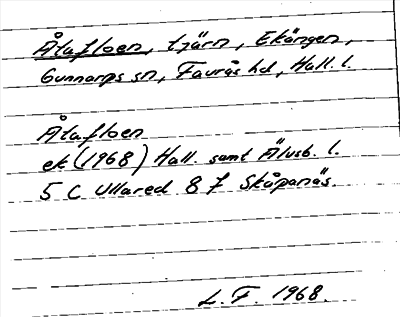 Ålafloen, tjärn, Ekängen,
Gunnarps sn, Faurås hd, Hall. l.
Ålafloen
ek (1968) Hall. samt Älvsb. l.
5 C Ullared 8 f Skåpanäs.
L. F. 1968.